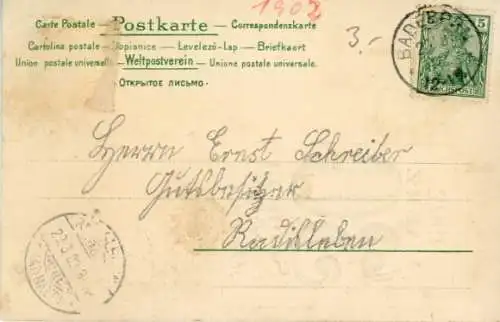 1902
Carte Postale — Postkarte — Correspondenzkarte
Cartolina postale — Dopisnice — Levelező-Lap — Briefkaart
Union postale universelle — Weltpostverein — Unione postale universale.
ОТКРЫТОЕ ПИСЬМО
3.-
5
REICHSPOST
Herrn Ernst Schreiber
Gutsbesitzer
Radisleben